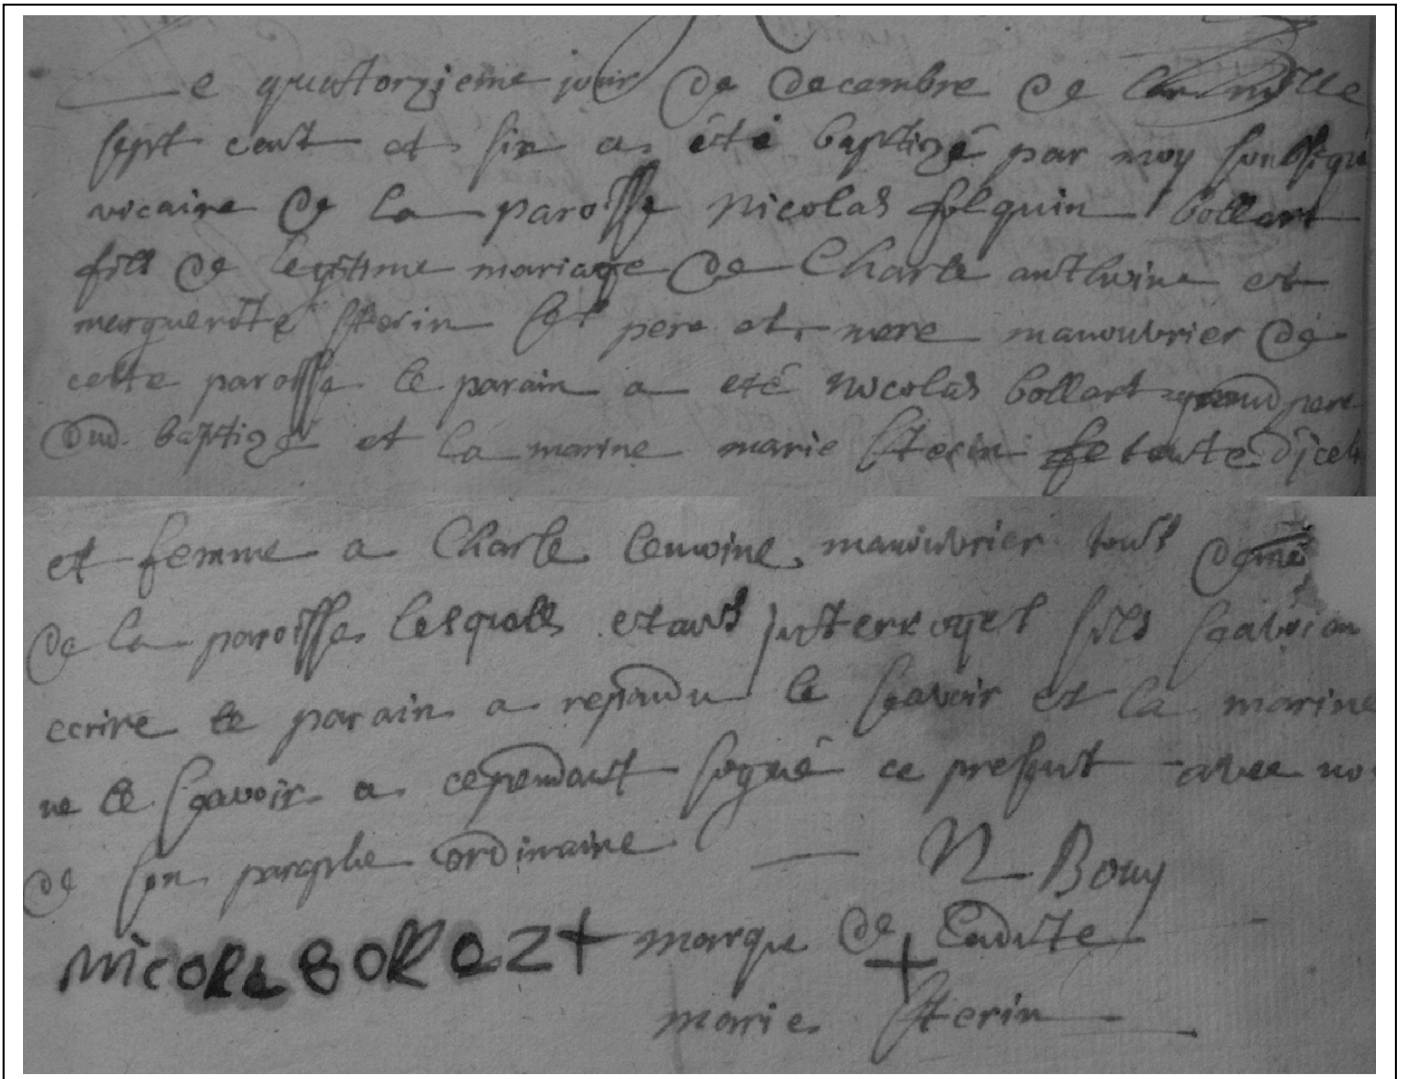 Le quattorzieme jour de decembre de l'an mille
sept cent et six a été baptizé par moy soubsigné
vicaire de la paroisse Nicolas folquin bollart
fill de legitime mariage de Charle anthoine et
marguerite Sterin ses pere et mere manouvrier de
cette paroisse le parain a eté Nicolas bollart grand pere
dud. baptizé et la marine marie Sterin tente d'icelui
et femme a Charle manouvrier touts
de la paroisse lesquels etants interroges sils scavoient
ecrire le parain a repondu le scavoir et la marine
ne le scavoir a cependant signé ce present avec nous
de son paraphe ordinaire N Bouy
nicolas bollart marque de Ladite
marie Sterin